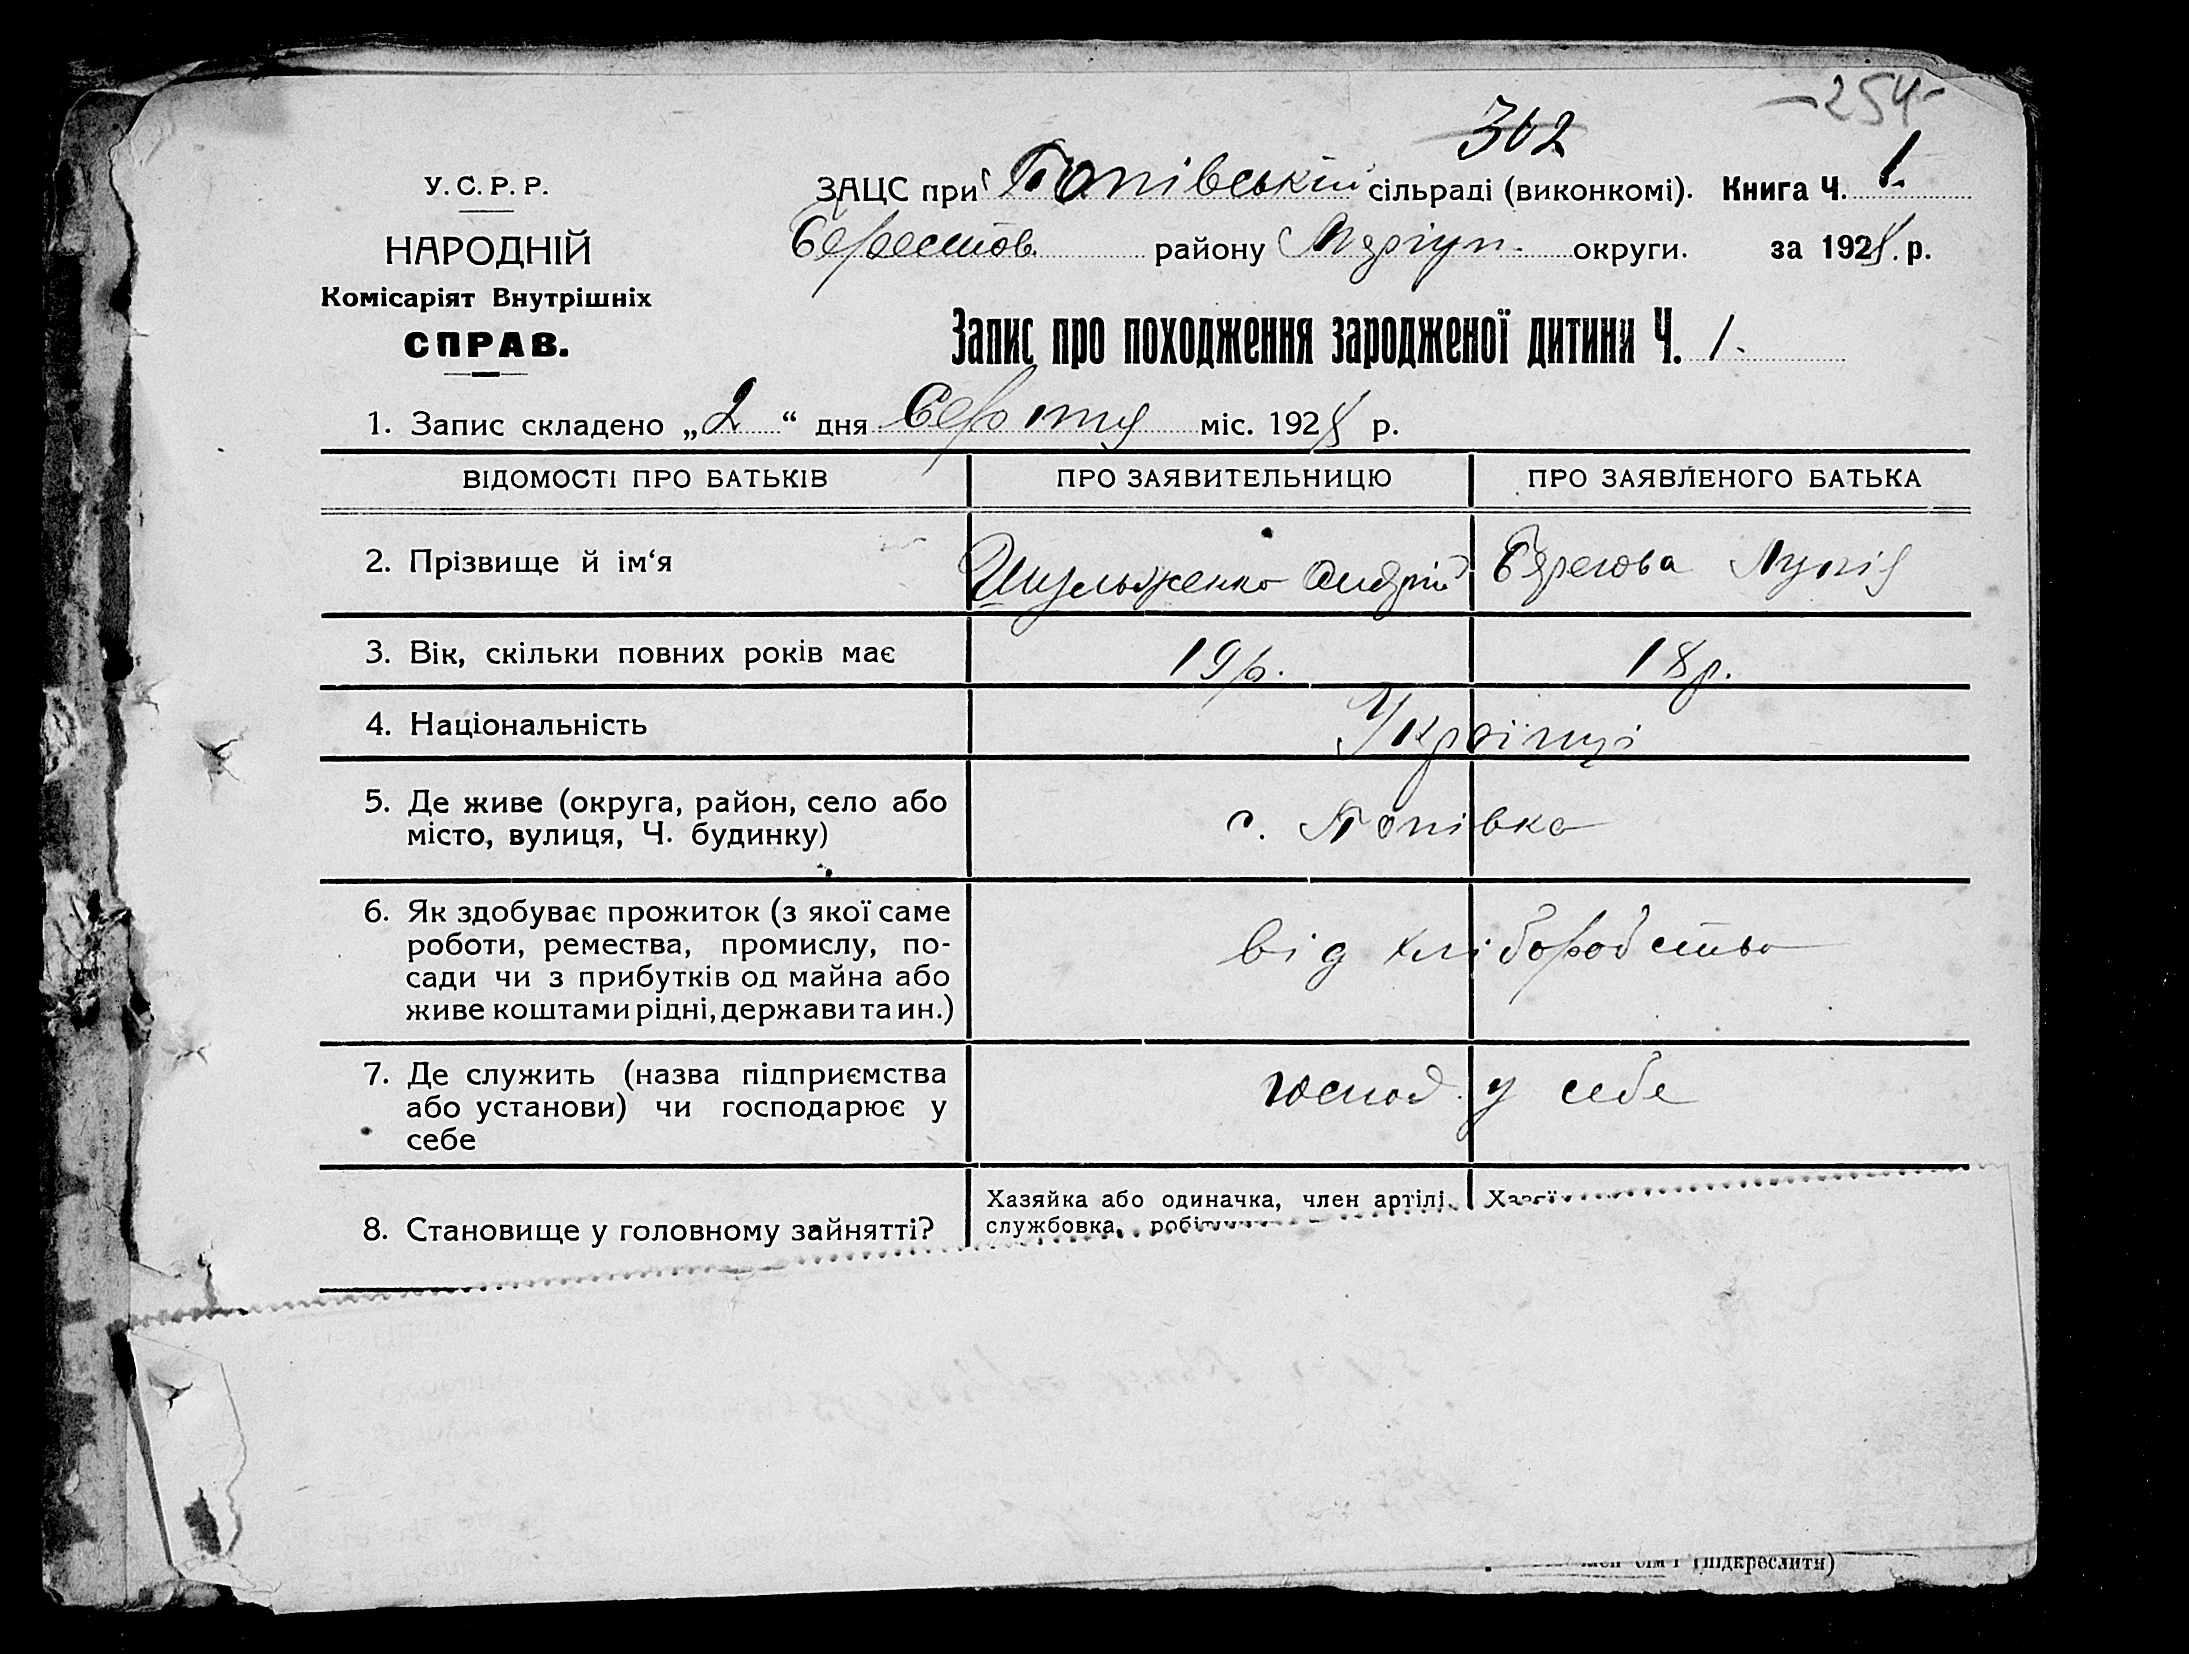 -254-
302
У.С.Р.Р.
НАРОДНІЙ
Комісаріят Внутрішніх
СПРАВ.
ЗАЦС при Попівській сільраді (виконкомі). Книга Ч. 1.
Берестов. району Маріуп. округи. за 1928 р.
Запис про походження зародженої дитини Ч. 1.
1. Запис складено „2“ дня Серпня міс. 1928 р.
ВІДОМОСТІ ПРО БАТЬКІВ ПРО ЗАЯВИТЕЛЬНИЦЮ ПРО ЗАЯВЛЕНОГО БАТЬКА
2. Прізвище й ім‘я Андрій
3. Вік, скільки повних років має 19 р. 18 р.
4. Національність Українці
5. Де живе (округа, район, село або
місто, вулиця, Ч. будинку)
с. Попівка
6. Як здобуває прожиток (з якої саме
роботи, ремества, промислу, по-
сади чи з прибутків од майна або
живе коштами рідні, держави та ин.)
від хліборобства
7. Де служить (назва підприємства
або установи) чи господарює у
себе
господ. у себе
8. Становище у головному зайнятті?
Хазяйка або одиначка, член артілі,
службовка,
(підкреслити)